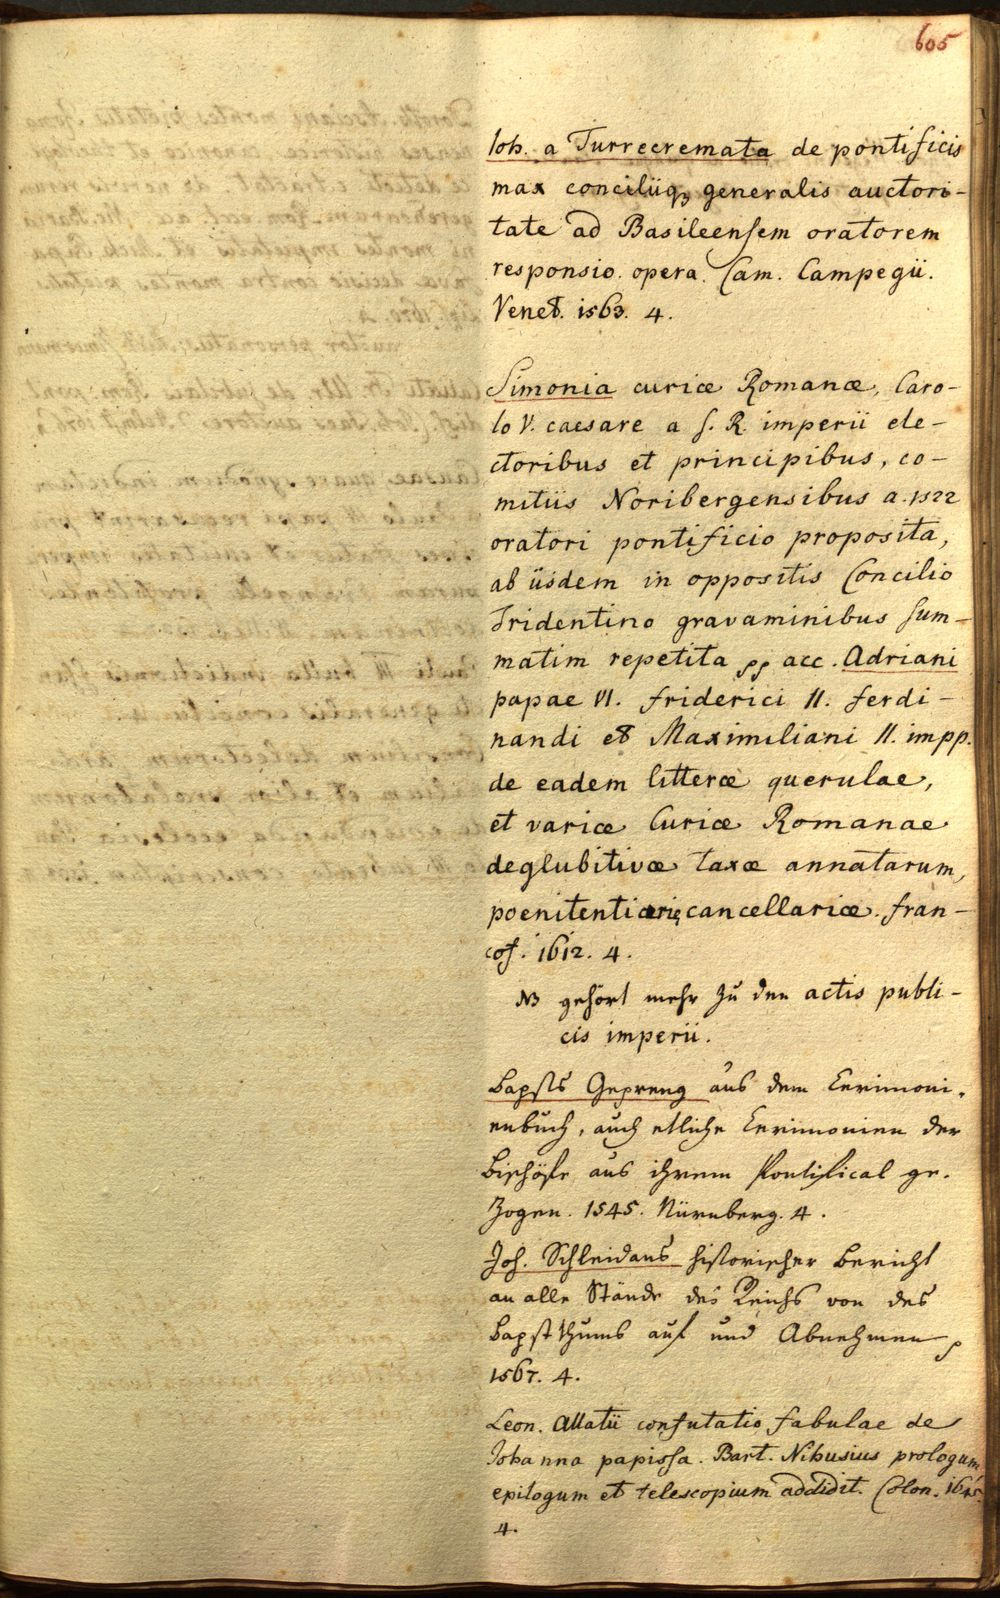 605
Ioh. a Turrecremata de pontificis
max conciliiq3 generalis auctori-
tate ad Basileensem oratorem
responsio. opera. Cam. Campegii.
Venet. 1563. 4.
Simonia curiæ Romanæ, Caro-
lo V. caesare a S. R. imperii ele-
ctoribus et principibus, co-
mitiis Noribergensibus a. 1522
oratori pontificio proposita,
ab iisdem in oppositis Concilio
Tridentino gravaminibus sum-
matim repetita pp acc. Adriani
papae VI. friderici II. ferdi-
nandi et Maximiliani II. impp.
de eadem litteræ querulae,
et variæ Curiæ Romanae
deglubitivæ taxæ annatarum,
poenitentiarię cancellariæ. fran-
cof. 1612. 4.
NB gehört mehr zu den actis publi-
cis imperii.
Bapsts Gepreng aus dem Cerimoni-
enbuch, auch etliche Cerimonien der
Bischöfe aus ihrem Pontifical ge-
zogen. 1545. Nürnberg. 4.
Joh. Schleidans historischer Bericht
an alle Stände des Reichs von des
Bapstthums auf und Abnehmen p
1567. 4.
Leon. Allatii confutatio fabulae de
Iohanna papissa. Bart. Nihusius prologum
epilogum et telescopium addidit. Colon. 1645.
4.